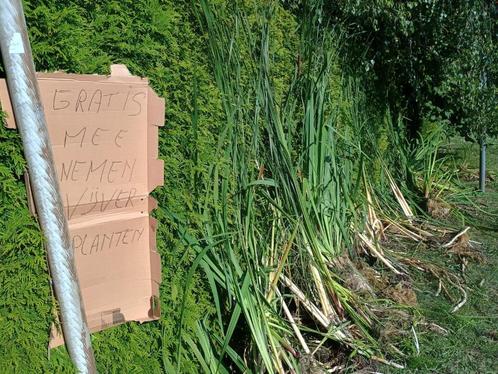 GRATIS
MEE
NEMEN
VIJVER
PLANTEN